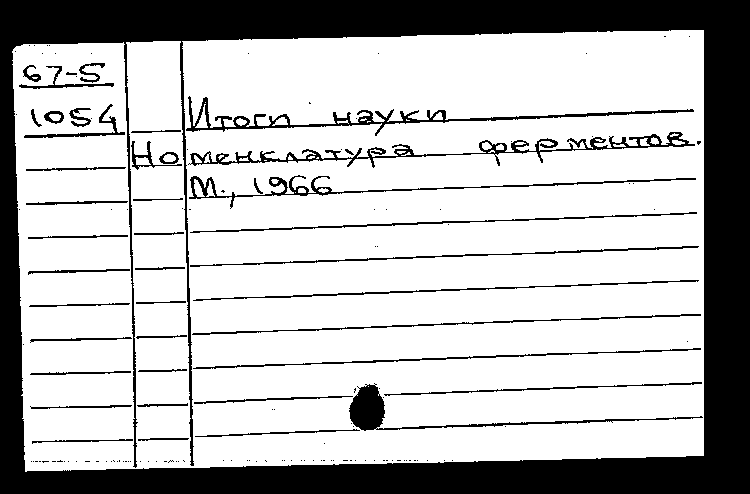 67-5
1054
Итоги науки
Номенклатура ферментов.
М., 1966